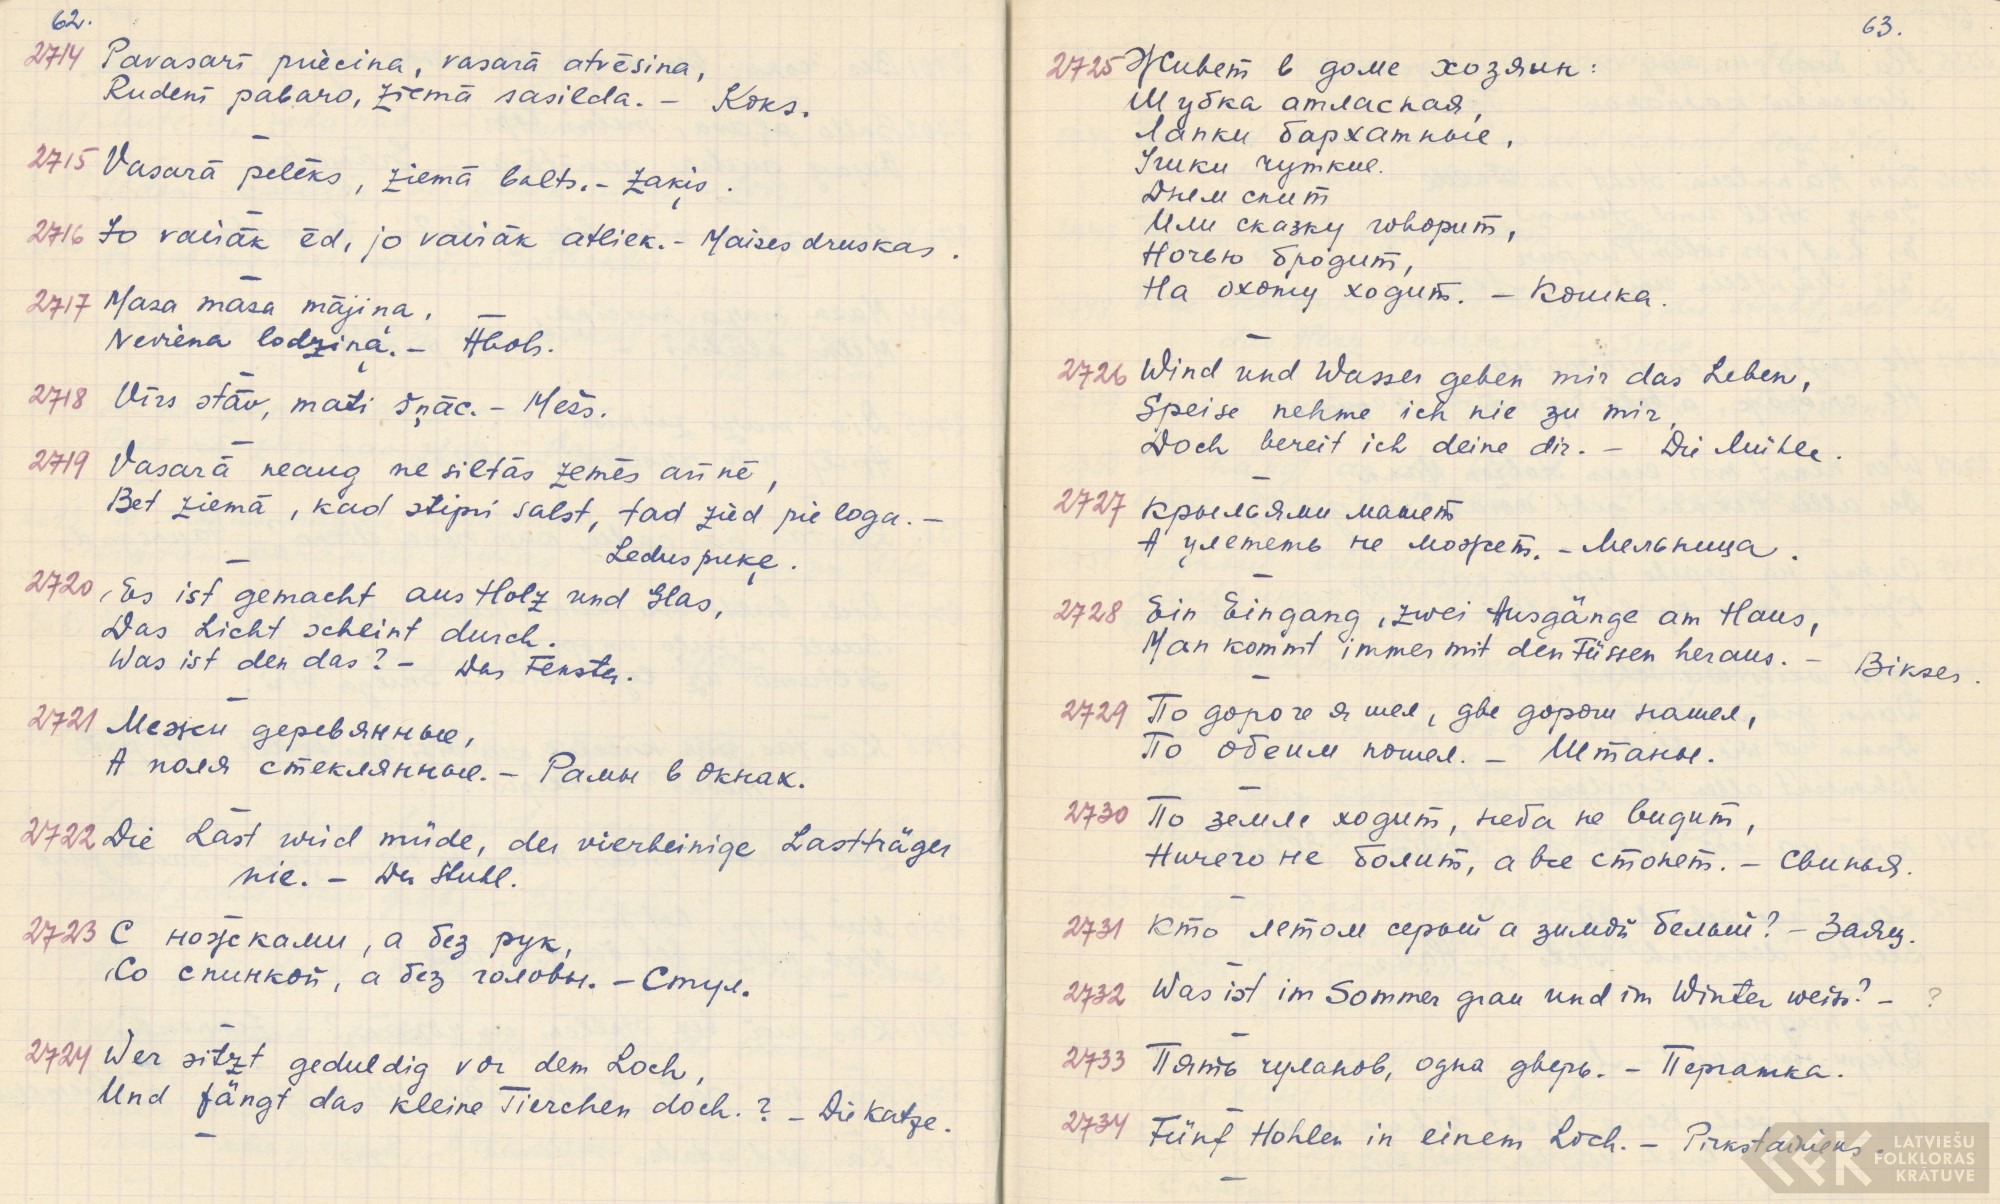 62.
2714 Pavasarī priècina, vasarā atvēsina,
Rudenī pabaro, ziemā sasilda. – Koks.
2715 Vasarā pelēks, ziemā balts. – Zaķis.
2716 Jo vairāk ēd, jo vairāk atliek. – Maizes druskas.
2717 Maza maza mājiņa,
Neviena lodziņa. – Ābols.
2718 Vīrs stāv, mati šņāc. – Mežs.
2719 Vasarā neaug ne siltās zemēs ārīnē,
Bet ziemā, kad stipri salst, tad zied pie loga. –
Ledus puķe.
2720 Es ist gemacht aus Holz und Glas,
Das Licht scheint durch.
Was ist den das? – Das Fenster.
2721 Межи деревянные,
А поля стеклянные. – Рамы в окнах.
2722 Die Last wird müde, der vierbeinige Lastträger
nie. – Der Stuhl.
2723 С ножками, а без рук,
Со спинкой, а без головы. – Стул.
2724 Wer sitzt geduldig vor dem Loch,
Und fängt das kleine Tierchen doch.? – Die Katze.
63.
2725 Живет в доме хозяин:
Шубка атласная,
Лапки бархатные,
Ушки чуткие.
Днем спит
Или сказку говорит,
Ночью бродит,
На охоту ходит. – Кошка.
2726 Wind und Wasser geben mir das Leben,
Speise nehme ich nie zu mir,
Doch bereit ich deine dir. – Die Mühle.
2727 Крыльями машет
А улететь не может. – Мельница.
2728 Ein Eingang, zwei Ausgänge am Haus,
Man kommt immer mit den Füssen heraus. – Bikses.
2729 По дороге я шел, две дороги нашел,
По обеим пошел. – Штаны.
2730 По земле ходит, неба не видит,
Ничего не болит, а все стонет. – Свинья.
2731 Кто летом серый а зимой белый? – Заяц.
2732 Was ist im Sommer grau und im Winter weiss? – ?
2733 Пять чуланов, одна дверь. – Перчатка.
2734 Fünf Hohlen in einem Loch. – Pirkstainiens.
LATVIEŠU
FOLKLORAS
KRĀTUVE